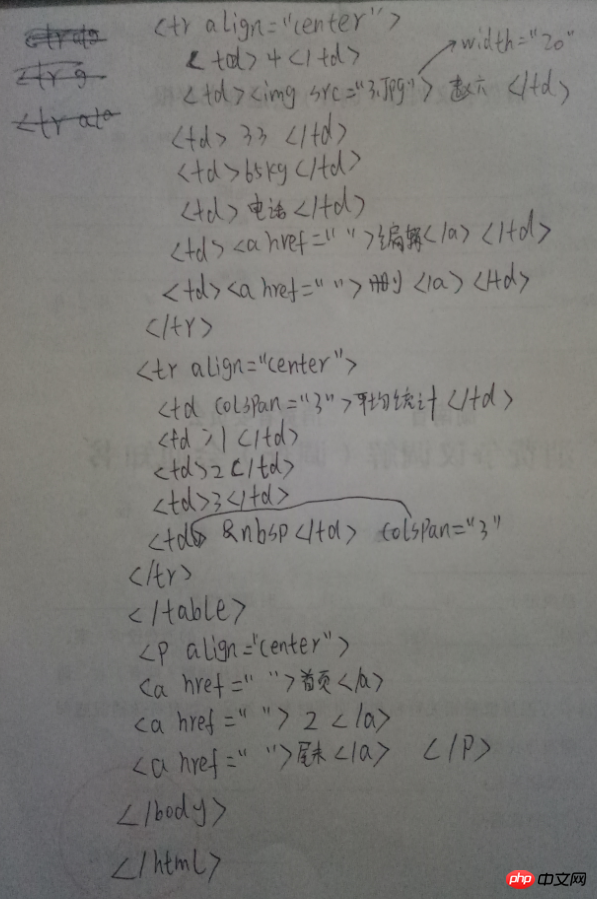 <tr align="center">
<td> 4 </td>
width="20"
<td><img src="3.Jpg"> 赵六 </td>
<td> 33 </td>
<td>65kg</td>
<td> 电话 </td>
<td> <a href=" ">编辑</a> </td>
<td><a href=" "> 删 </a> </td>
</tr>
<tr align="center">
<td colspan="3">平均统计</td>
<td>1</td>
<td>2</td>
<td>3</td>
<td> &nbsp</td> colspan="3"
</tr>
</table>
<p align="center">
<a href=" ">首页</a>
<a href=" "> 2 </a>
<a href=" ">尾末</a> </p>
</body>
</html>
php 中文网